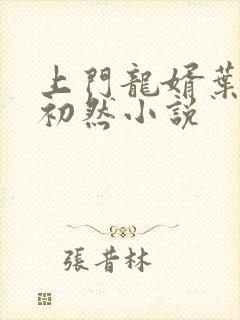 上門龍婿葉
初然小説
張昔林